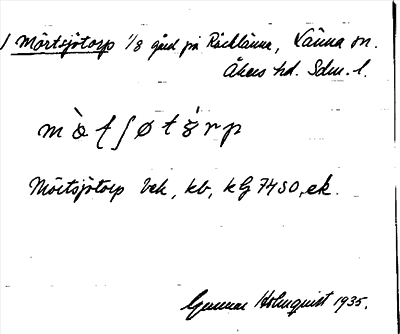 Mörtsjötorp 1/8 gård på Räcklänna, Länna sn.
Åkers hd. Sdm. l.
Mörtsjötorp bek, kb, kG 7450, ek.
Gunnar Holmquist 1935.